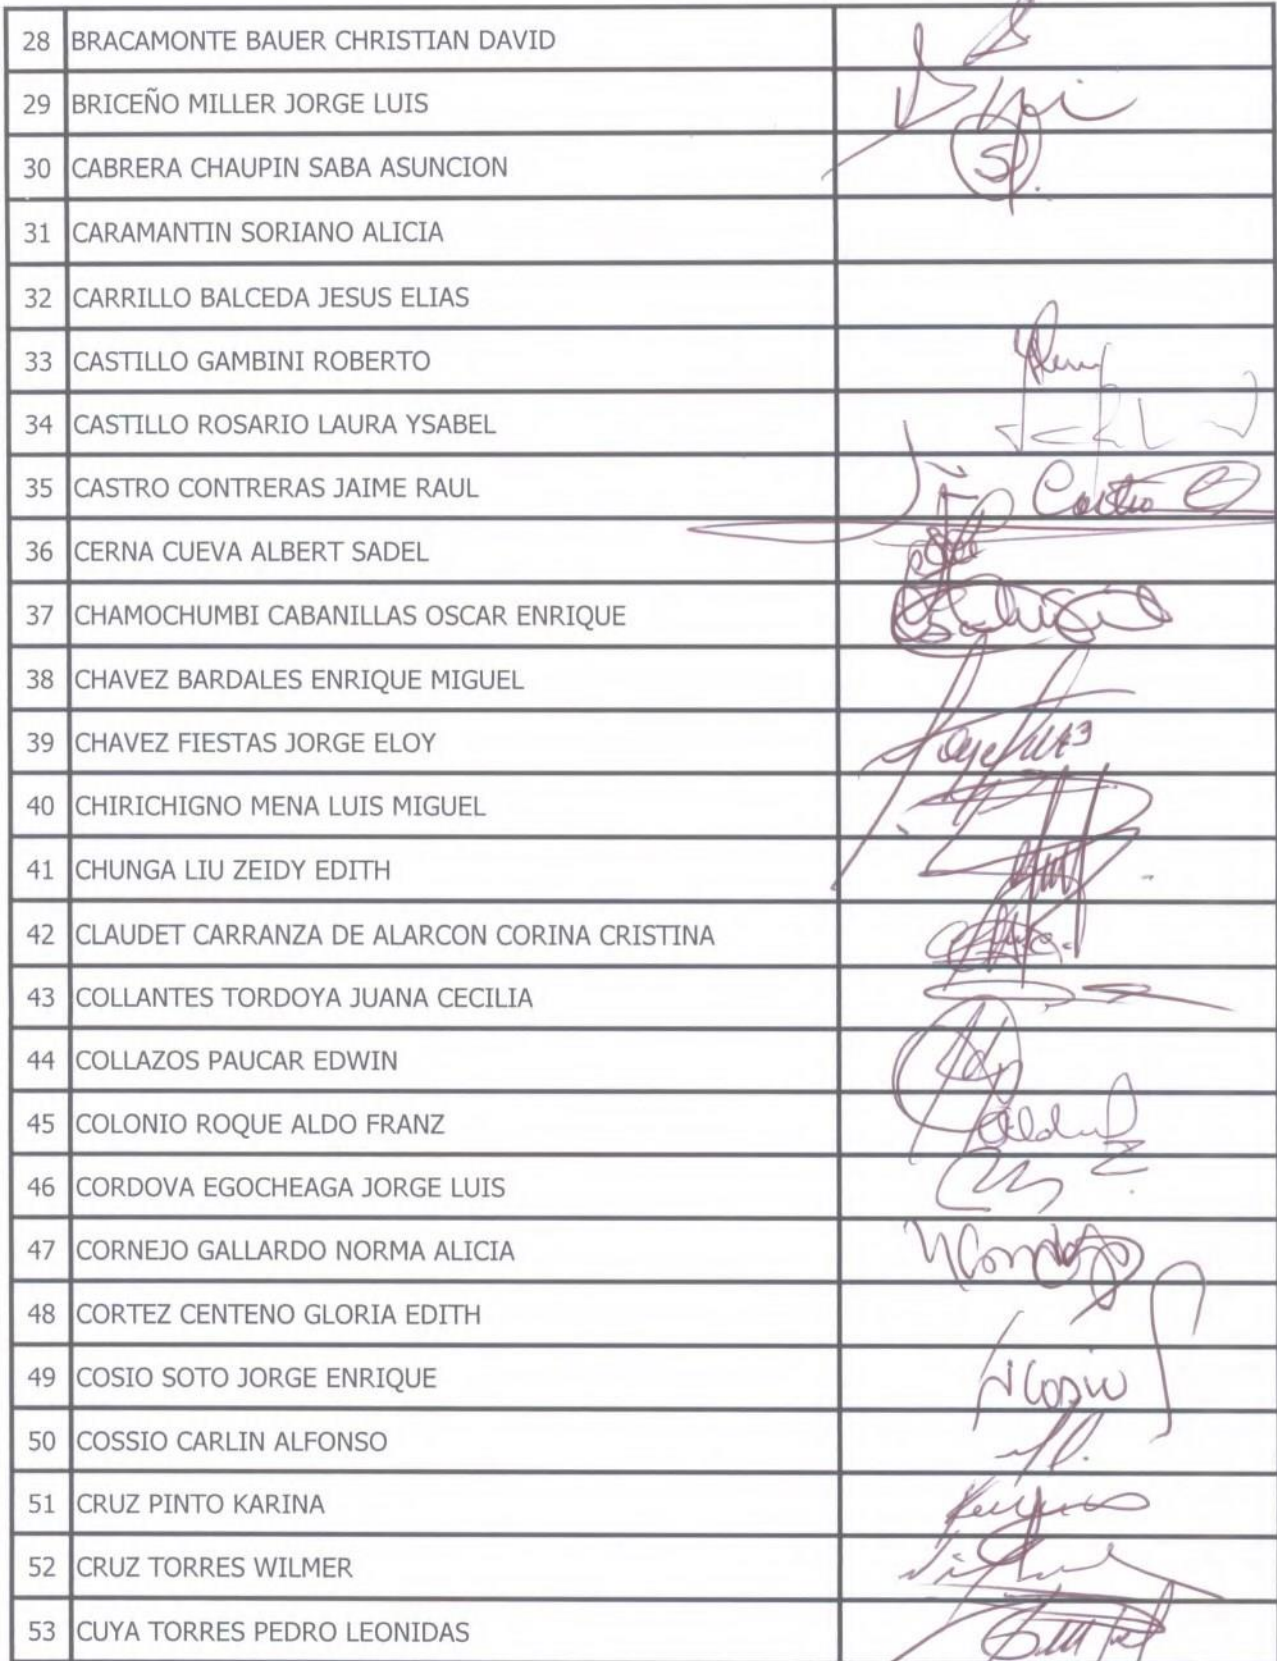 28 BRACAMONTE BAUER CHRISTIAN DAVID
29 BRICEÑO MILLER JORGE LUIS
30 CABRERA CHAUPIN SABA ASUNCION
31 CARAMANTIN SORIANO ALICIA
32 CARRILLO BALCEDA JESUS ELIAS
33 CASTILLO GAMBINI ROBERTO
34 CASTILLO ROSARIO LAURA YSABEL
35 CASTRO CONTRERAS JAIME RAUL Castro
36 CERNA CUEVA ALBERT SADEL
37 CHAMOCHUMBI CABANILLAS OSCAR ENRIQUE
38 CHAVEZ BARDALES ENRIQUE MIGUEL
39 CHAVEZ FIESTAS JORGE ELOY
40 CHIRICHIGNO MENA LUIS MIGUEL
41 CHUNGA LIU ZEIDY EDITH
42 CLAUDET CARRANZA DE ALARCON CORINA CRISTINA
43 COLLANTES TORDOYA JUANA CECILIA
44 COLLAZOS PAUCAR EDWIN
45 COLONIO ROQUE ALDO FRANZ
46 CORDOVA EGOCHEAGA JORGE LUIS
47 CORNEJO GALLARDO NORMA ALICIA
48 CORTEZ CENTENO GLORIA EDITH
49 COSIO SOTO JORGE ENRIQUE
50 COSSIO CARLIN ALFONSO
51 CRUZ PINTO KARINA
52 CRUZ TORRES WILMER
53 CUYA TORRES PEDRO LEONIDAS